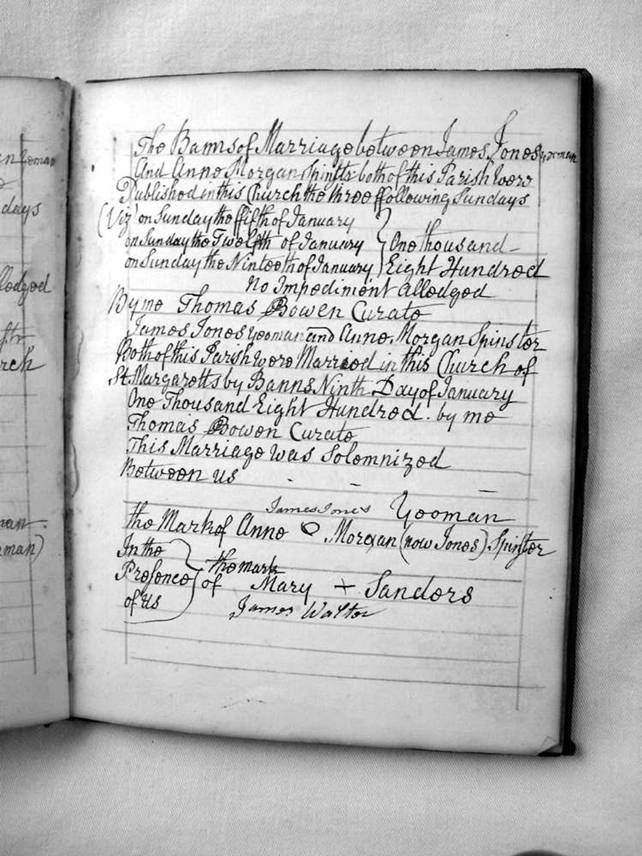 The Banns of Marriage between James Jones yeoman
And Anne Morgan Spinstr both of this Parish were
Published in this Church the three ffollowing Sundays
(Viz) on Sunday the ffifth of January
on Sunday the Twelfth of January } One thousand
on Sunday the Ninteeth of January } Eight Hundred
No Impediment alledged
By me Thomas Bowen Curate
James Jones yeoman and Anne Morgan Spinster
Both of this Parish were Married in this Church of
St. Margaretts by Banns Ninth Day of January
One Thousand Eight Hundred. by me
Thomas Bowen Curate
This Marriage was Solemnized
Between us
James Jones Yeoman
the Mark of Anne O Morgan (now Jones) Spinster
In the
Presence } the mark
of us } of Mary + Sandors
James Walter
days
alledged
rch
man)